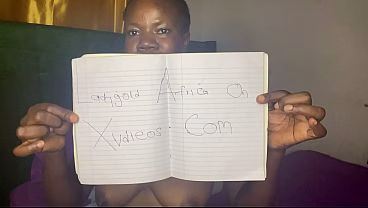 ashgold Africa On
Xvideos. Com